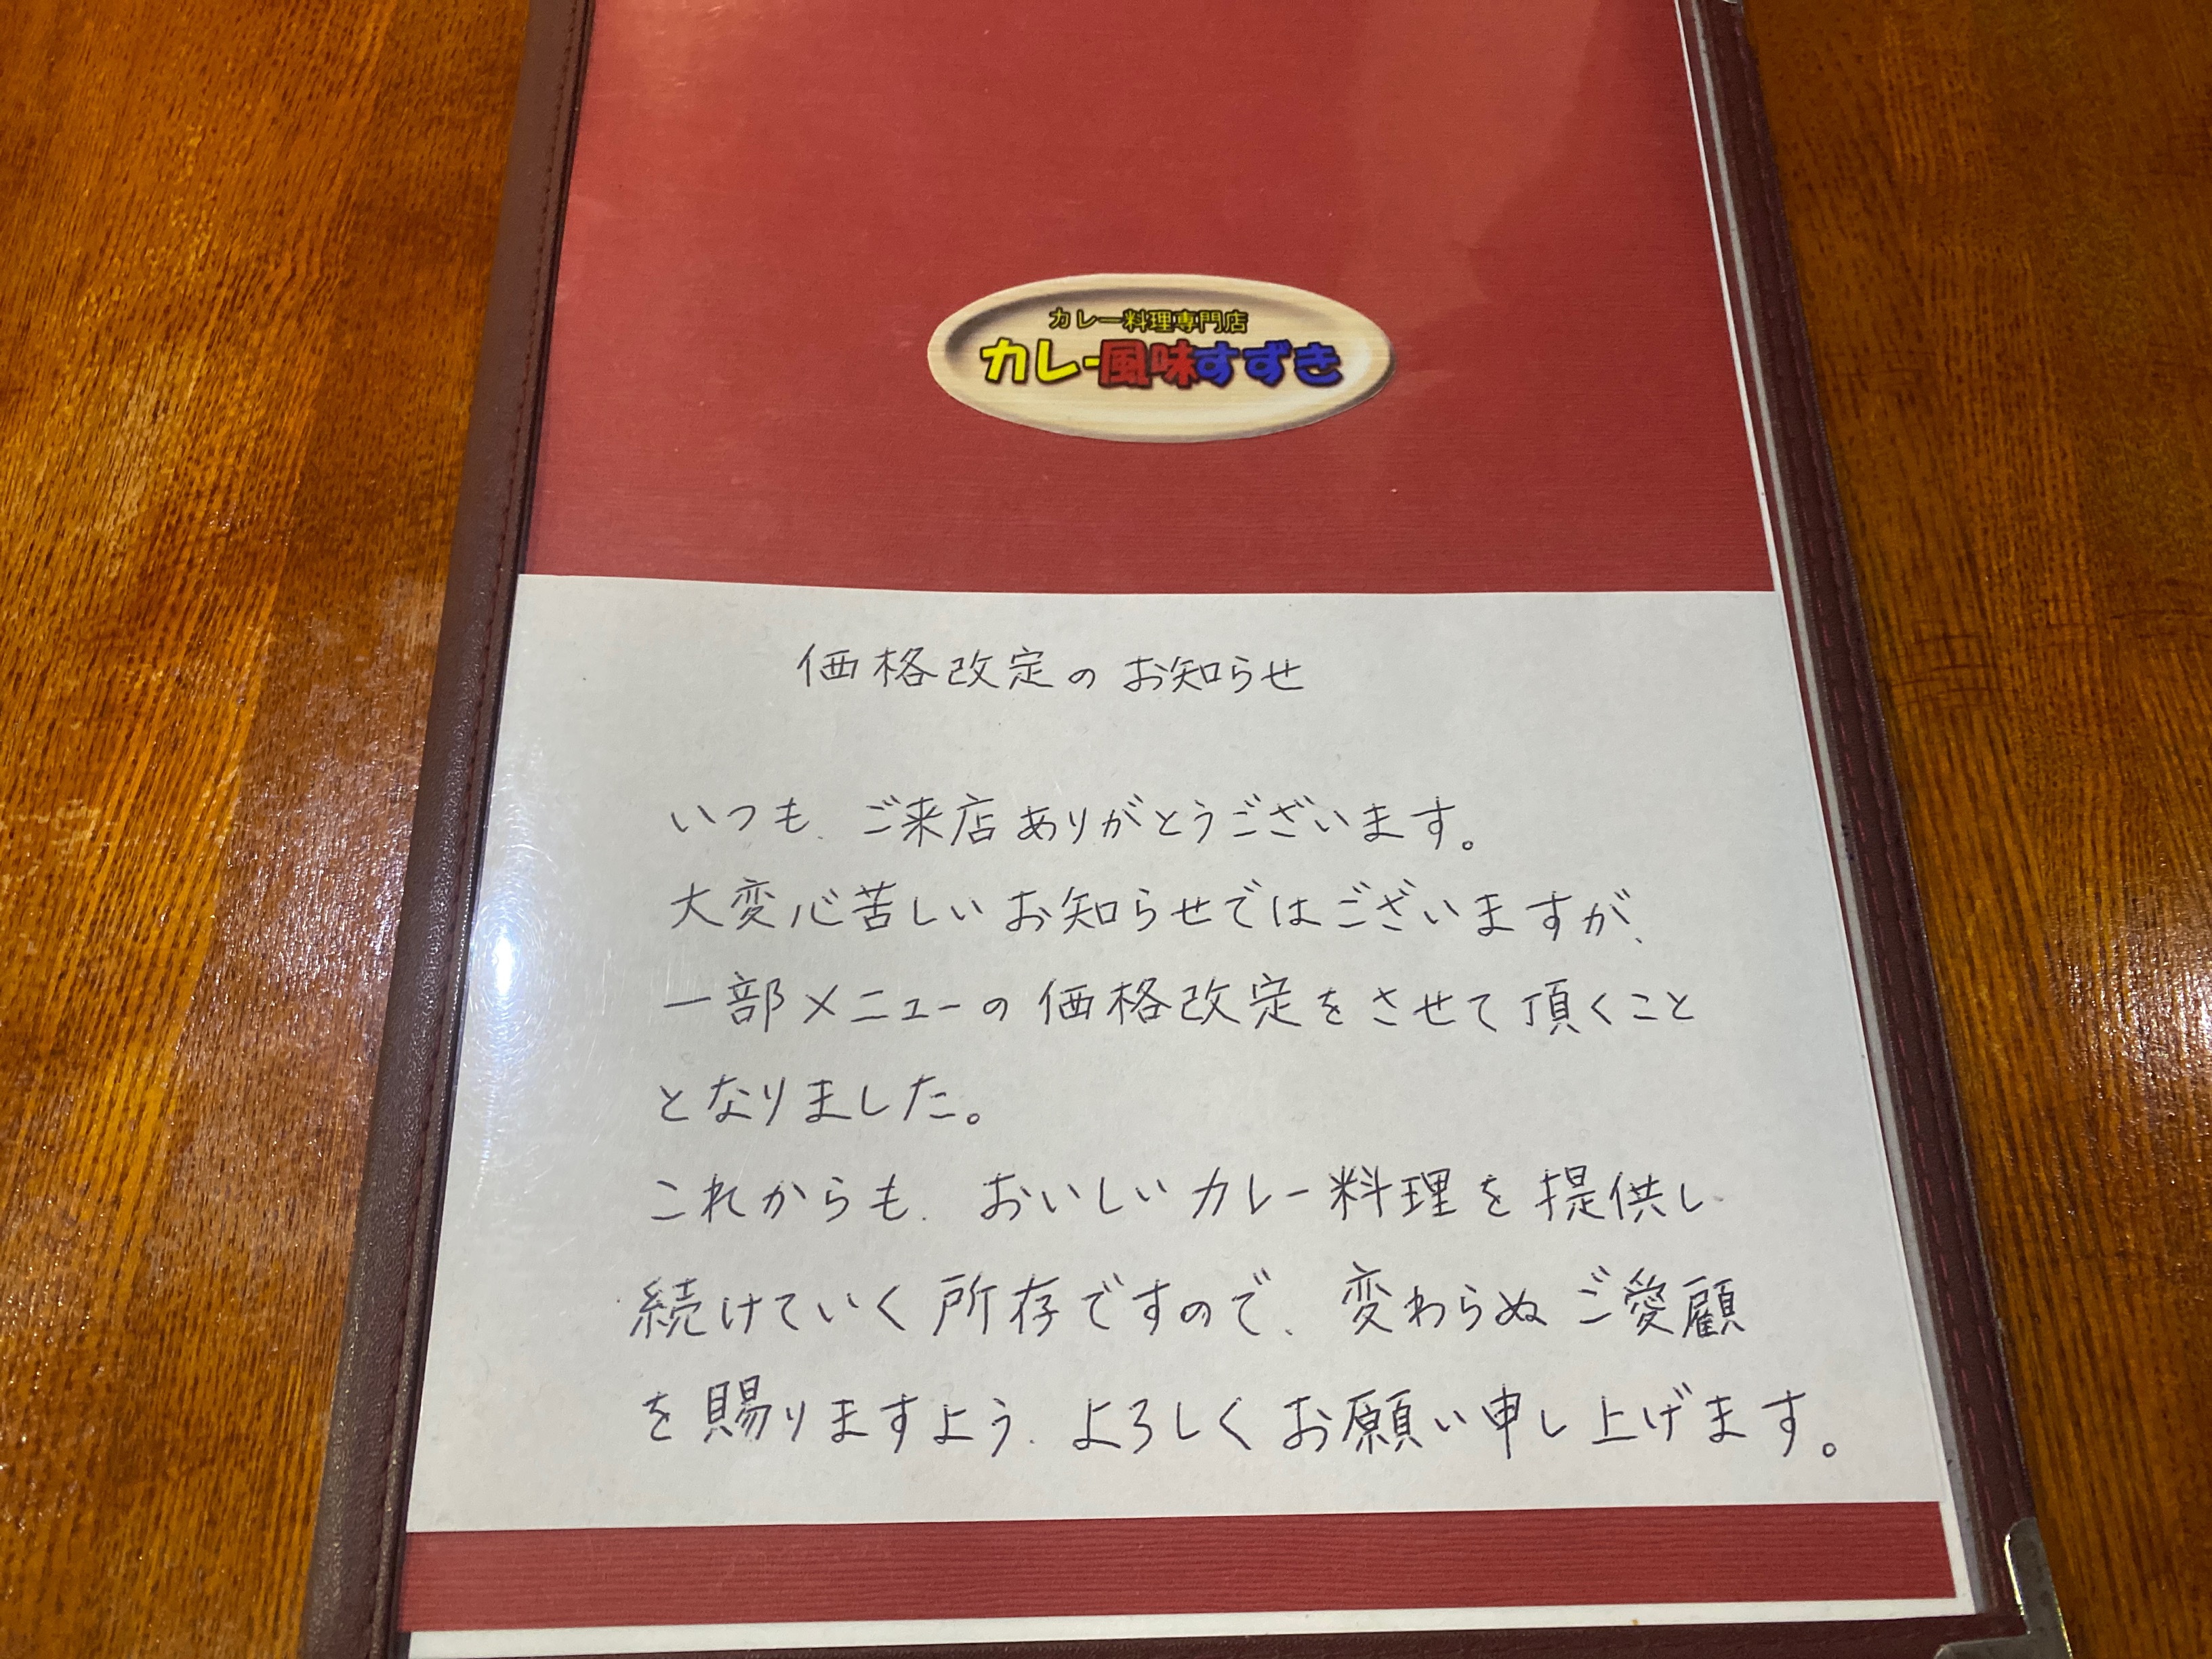 カレー料理専門店
カレー風味すずき
価格改定のお知らせ
いつも、ご来店ありがとうございます。
大変心苦しいお知らせではございますが、
一部メニューの価格改定をさせて頂くこと
となりました。
これからも、おいしいカレー料理を提供し
続けていく所存ですので、変わらぬご愛顧
を賜りますよう、よろしくお願い申し上げます。